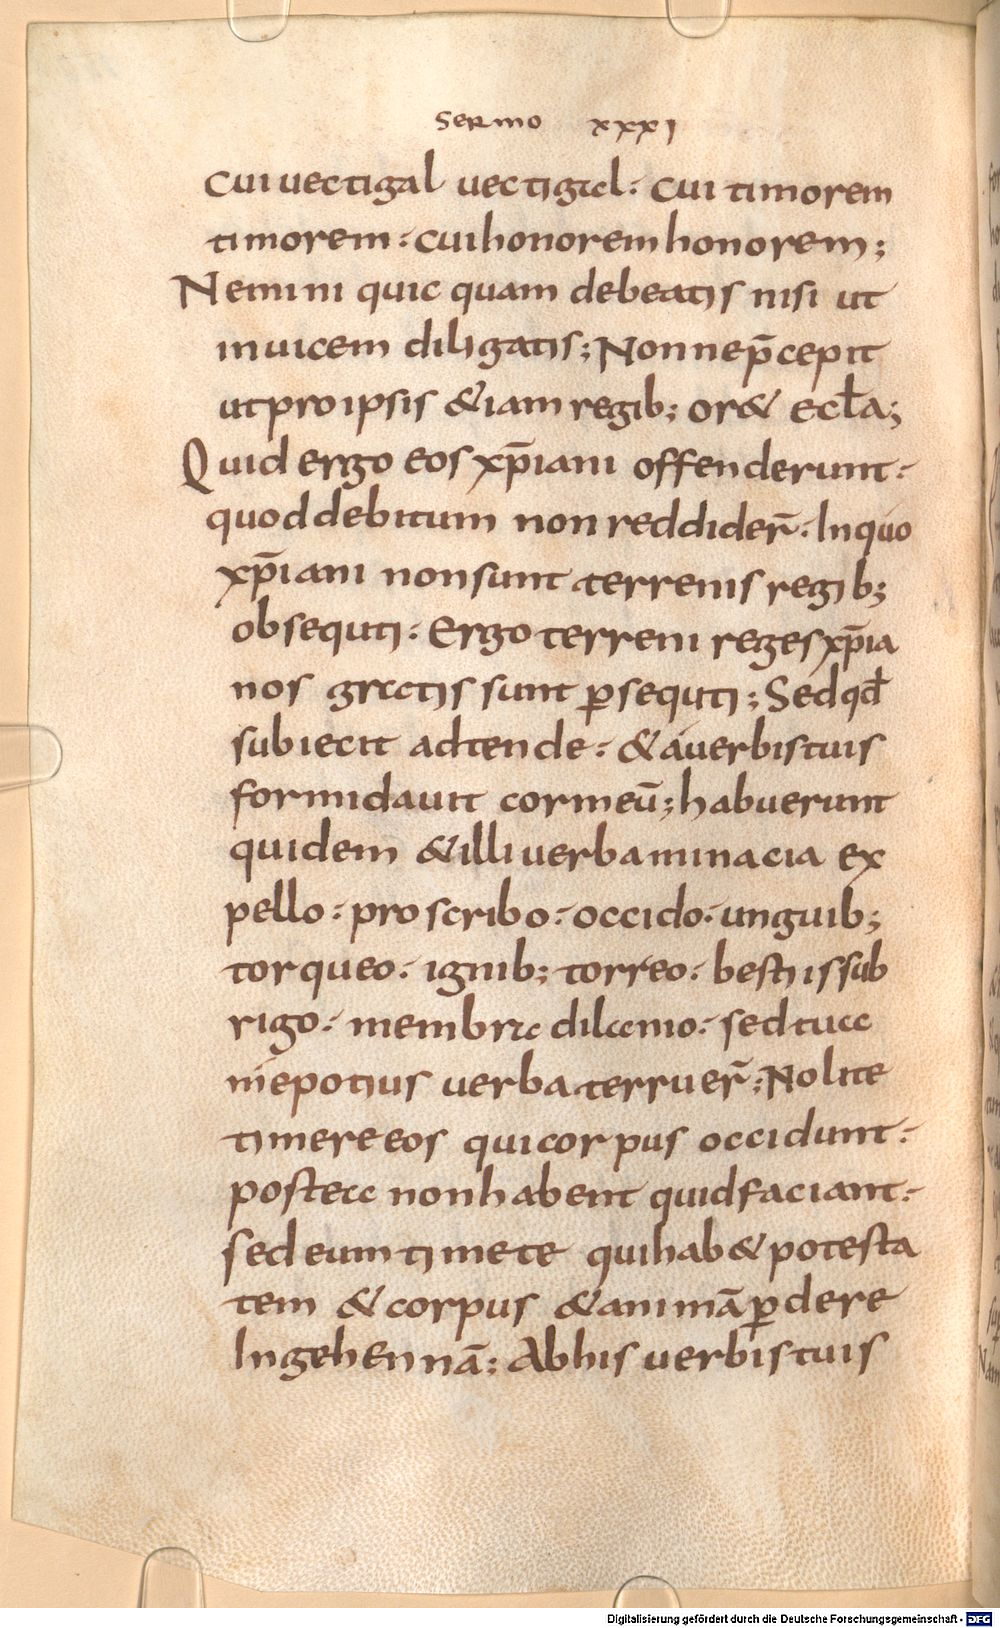 Sermo xxxi
cui uectigal uectigal· cui timorem
timorem· cui honorem honorem;
Nemini quicquam debeatis nisi ut
inuicem diligatis; Nonne p̄cepit
ut pro ipsis &iam regib; or& eccl̄a;
Quid ergo eos xp̄iani offenderunt·
quod debitum non reddider̄· In quo
xp̄iani non sunt terrenis regib;
obsequti· Ergo terreni reges xp̄ia
nos gratis sunt ꝑsequti; Sed qđ
subiecit adtende· & a uerbis tuis
formidauit cor meū; habuerunt
quidem & illi uerba minacia ex
pello· proscribo· occido· unguib;
torqueo· ignib; torreo· bestiis sub
rigo· membra dilanio· sed tua
me potius uerba terruer̄; Nolite
timere eos qui corpus occidunt·
postea non habent quid faciant·
sed eum timete qui hab& potesta
tem & corpus & animā ꝑdere
In gehennā; Ab his uerbis tuis
Digitalisierung gefördert durch die Deutsche Forschungsgemeinschaft - DFG